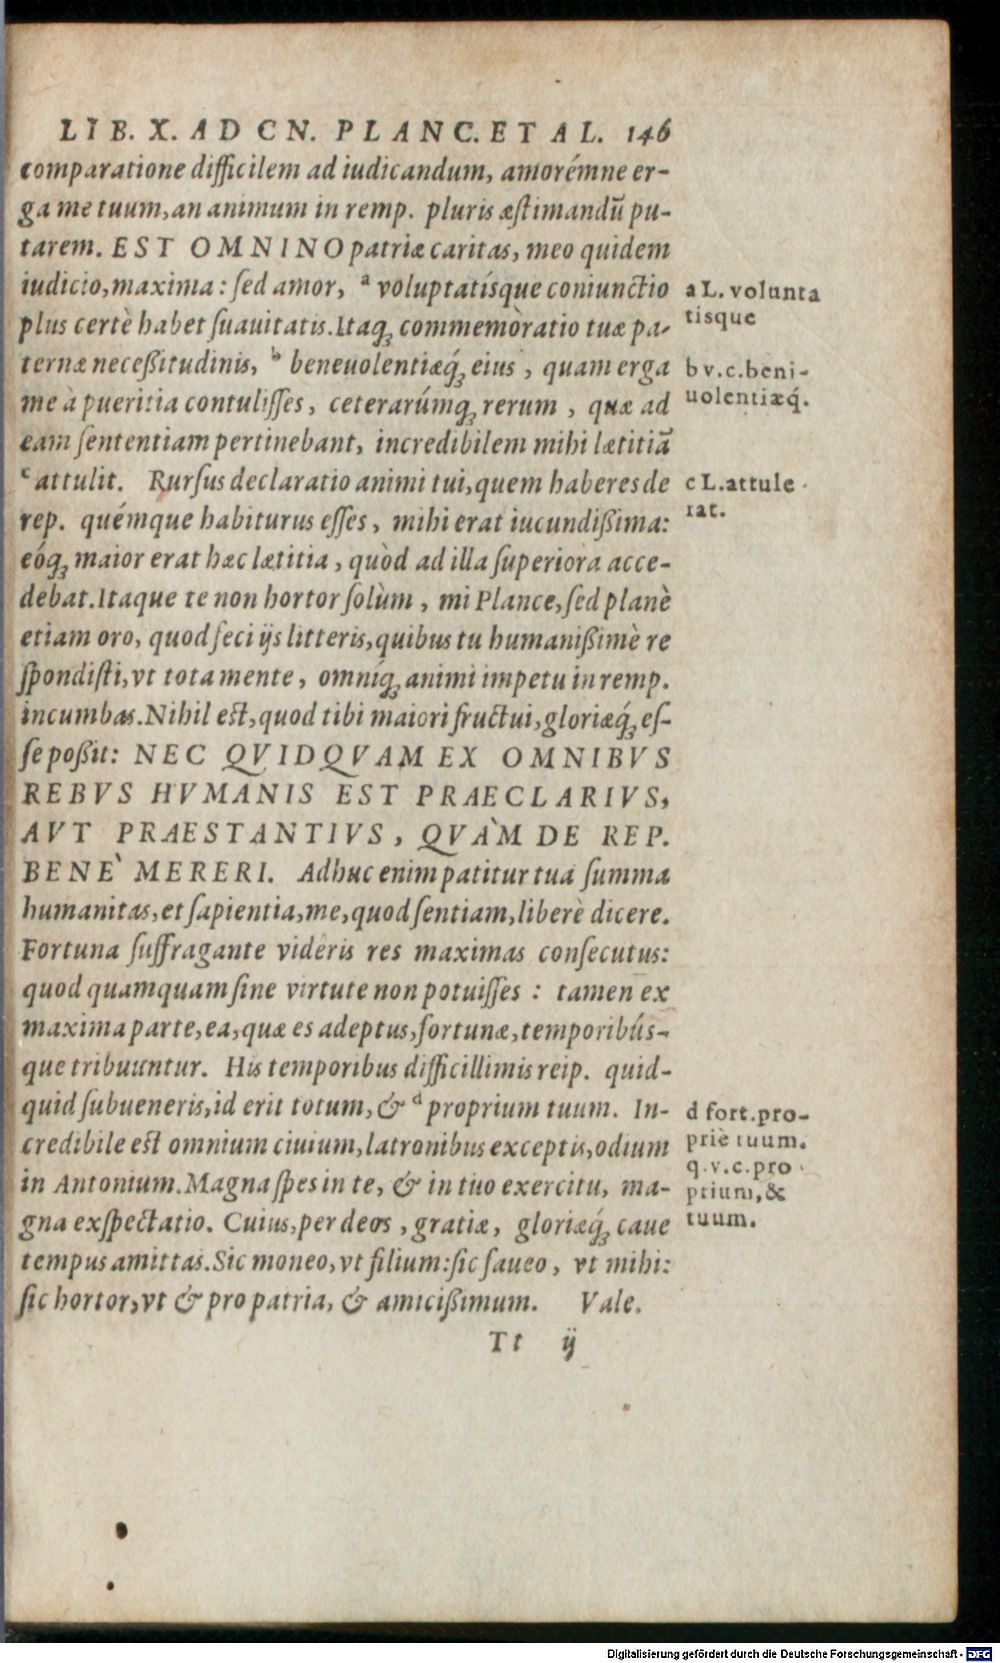 LIB. X. AD CN. PLANC. ET AL. 146
comparatione difficilem ad iudicandum, amorémne er-
ga me tuum, an animum in remp. pluris æstimandū pu-
tarem. EST OMNINO patriæ caritas, meo quidem
iudicio, maxima: sed amor, ᵃ voluptatísque coniunctio
plus certè habet suauitatis. Itaqꝫ commemòratio tuæ pa-
ternæ neceßitudinis, ᵇ beneuolentiæq́ꝫ eius, quam erga
me à pueritia contulisses, ceterarúmqꝫ rerum, quæ ad
eam sententiam pertinebant, incredibilem mihi lætitiā
ᶜ attulit. Rursus declaratio animi tui, quem haberes de
rep. quémque habiturus esses, mihi erat iucundißima:
eóqꝫ maior erat hæc lætitia, quòd ad illa superiora acce-
debat. Itaque te non hortor solùm, mi Plance, sed planè
etiam oro, quod feci ijs litteris, quibus tu humanißimè re
spondisti, vt tota mente, omníqꝫ animi impetu in remp.
incumbas. Nihil est, quod tibi maiori fructui, gloriæq́ꝫ es-
se poßit: NEC QVIDQVAM EX OMNIBVS
REBVS HVMANIS EST PRAECLARIVS,
AVT PRAESTANTIVS, QVÀM DE REP.
BENÈ MERERI. Adhuc enim patitur tua summa
humanitas, et sapientia, me, quod sentiam, liberè dicere.
Fortuna suffragante vidêris res maximas consecutus:
quod quamquam sine virtute non potuisses: tamen ex
maxima parte, ea, quæ es adeptus, fortunæ, temporibús-
que tribuuntur. His temporibus difficillimis reip. quid-
quid subueneris, id erit totum, & ᵈ proprium tuum. In-
credibile est omnium ciuium, latronibus exceptis, odium
in Antonium. Magna spes in te, & in tuo exercitu, ma-
gna exspectatio. Cuius, per deos, gratiæ, gloriæq́ꝫ caue
tempus amittas. Sic moneo, vt filium: sic faueo, vt mihi:
sic hortor, vt & pro patria, & amicißimum. Vale.
Tt ij
a L. volunta
tisque
b v.c. beni-
uolentiæq́.
c L. attule
rat.
d fort. pro-
priè tuum.
q.v.c. pro
prium, &
tuum.
Digitalisierung gefördert durch die Deutsche Forschungsgemeinschaft - DFG